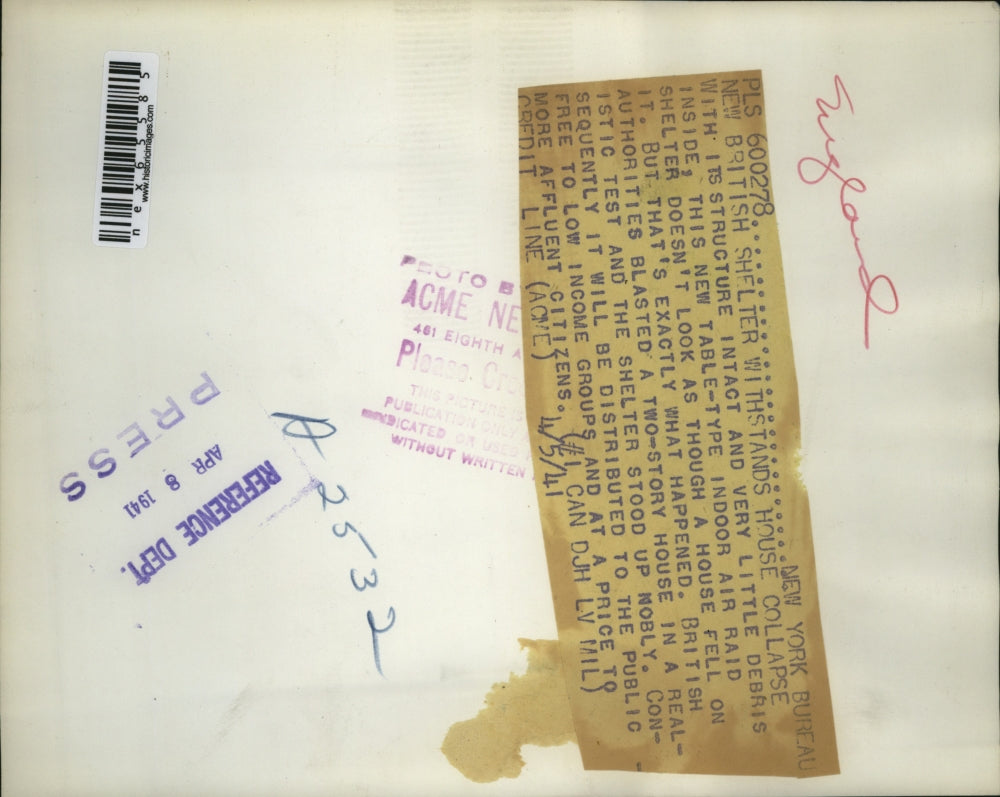 England
PLS 600278..................NEW YORK BUREAU
NEW BRITISH SHELTER WITHSTANDS HOUSE COLLAPSE
WITH ITS STRUCTURE INTACT AND VERY LITTLE DEBRIS
INSIDE, THIS NEW TABLE-TYPE INDOOR AIR RAID
SHELTER DOESN'T LOOK AS THOUGH A HOUSE FELL ON
IT. BUT THAT'S EXACTLY WHAT HAPPENED. BRITISH
AUTHORITIES BLASTED A TWO-STORY HOUSE IN A REAL-
ISTIC TEST AND THE SHELTER STOOD UP NOBLY. CON-
SEQUENTLY IT WILL BE DISTRIBUTED TO THE PUBLIC -
FREE TO LOW INCOME GROUPS AND AT A PRICE TO
MORE AFFLUENT CITIZENS.
CREDIT LINE (ACME) 4/5/41 CAN DJH LV MIL)
PHOTO B
ACME NE
461 EIGHTH A
Please Cre
THIS PICTURE IS
PUBLICATION ONLY
OR USED
WITHOUT WRITTEN
A 2532
REFERENCE DEPT.
APR 8 1941
PRESS
www.historicimages.com
nex65585